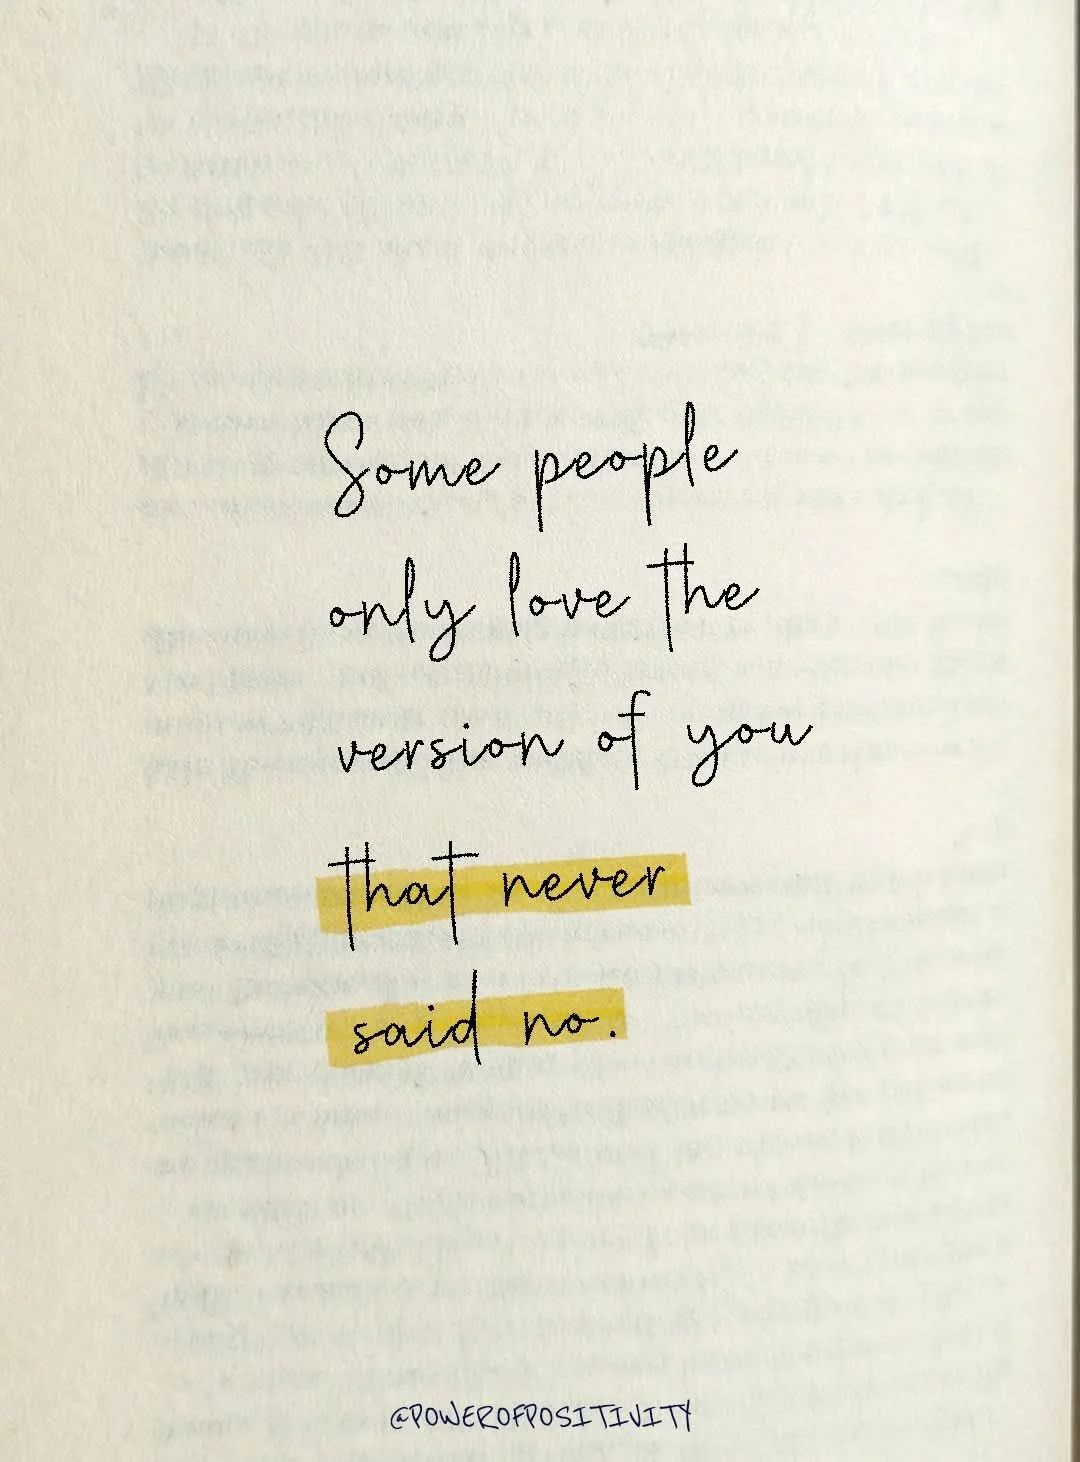 Some people
only love the
version of you
that never
said no.
@POWEROFPOSITIVITY